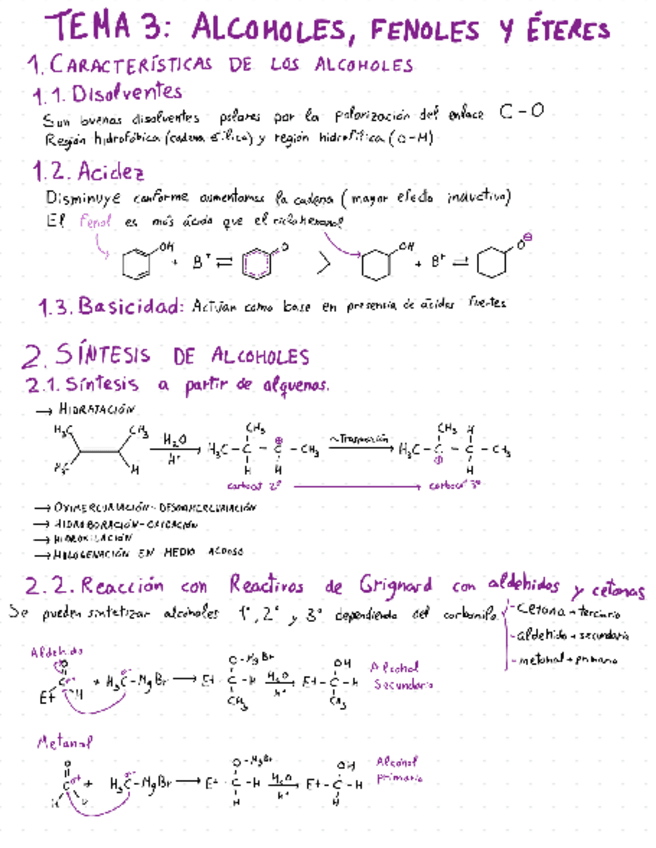 TEMA 3: ALCOHOLES, FENOLES Y ÉTERES
1. CARACTERÍSTICAS DE LOS ALCOHOLES
1.1. Disolventes
Son buenos disolventes polares por la polarización del enlace C-O
Región hidrofóbica (cadena alílica) y región hidrofílica (O-H)
1.2. Acidez
Disminuye conforme aumentamos la cadena (mayor efecto inductivo)
El fenol es más ácido que el ciclohexanol
OH + B⁺ ⇌ O > OH + B⁺ ⇌ O⊖
1.3. Basicidad: Actúan como base en presencia de ácidos fuertes
2. SÍNTESIS DE ALCOHOLES
2.1. Síntesis a partir de alquenos.
→ HIDRATACIÓN
H₃C CH₃ CH₃ CH₃ H
H₂O H₃C-C-C-CH₃ H₃C-C-C-CH₃
H⁺
H₃C H H H H
carbocat 2º → carbocat 3º
→ OXIMERCURIACIÓN-DESOXIMERCURIACIÓN
→ HIDROBORACIÓN-OXIDACIÓN
→ HIDROXILACIÓN
→ HALOGENACIÓN EN MEDIO ACUOSO
2.2. Reacción con Reactivos de Grignard con aldehidos y cetonas
Se pueden sintetizar alcoholes 1º, 2º y 3º dependiendo del carbonilo
- Cetona → terciario
- aldehido → secundario
- metanal → primario
Aldehido
O-MgBr OH
Et H + H₃C-MgBr → Et-C-H H₂O Et-C-H
H⁺
CH₃ CH₃
Alcohol
Secundario
Metanal
O O-MgBr OH
C + H₃C-MgBr → Et C-H H₂O Et-C-H
H⁺
H H H
Alcohol
primario